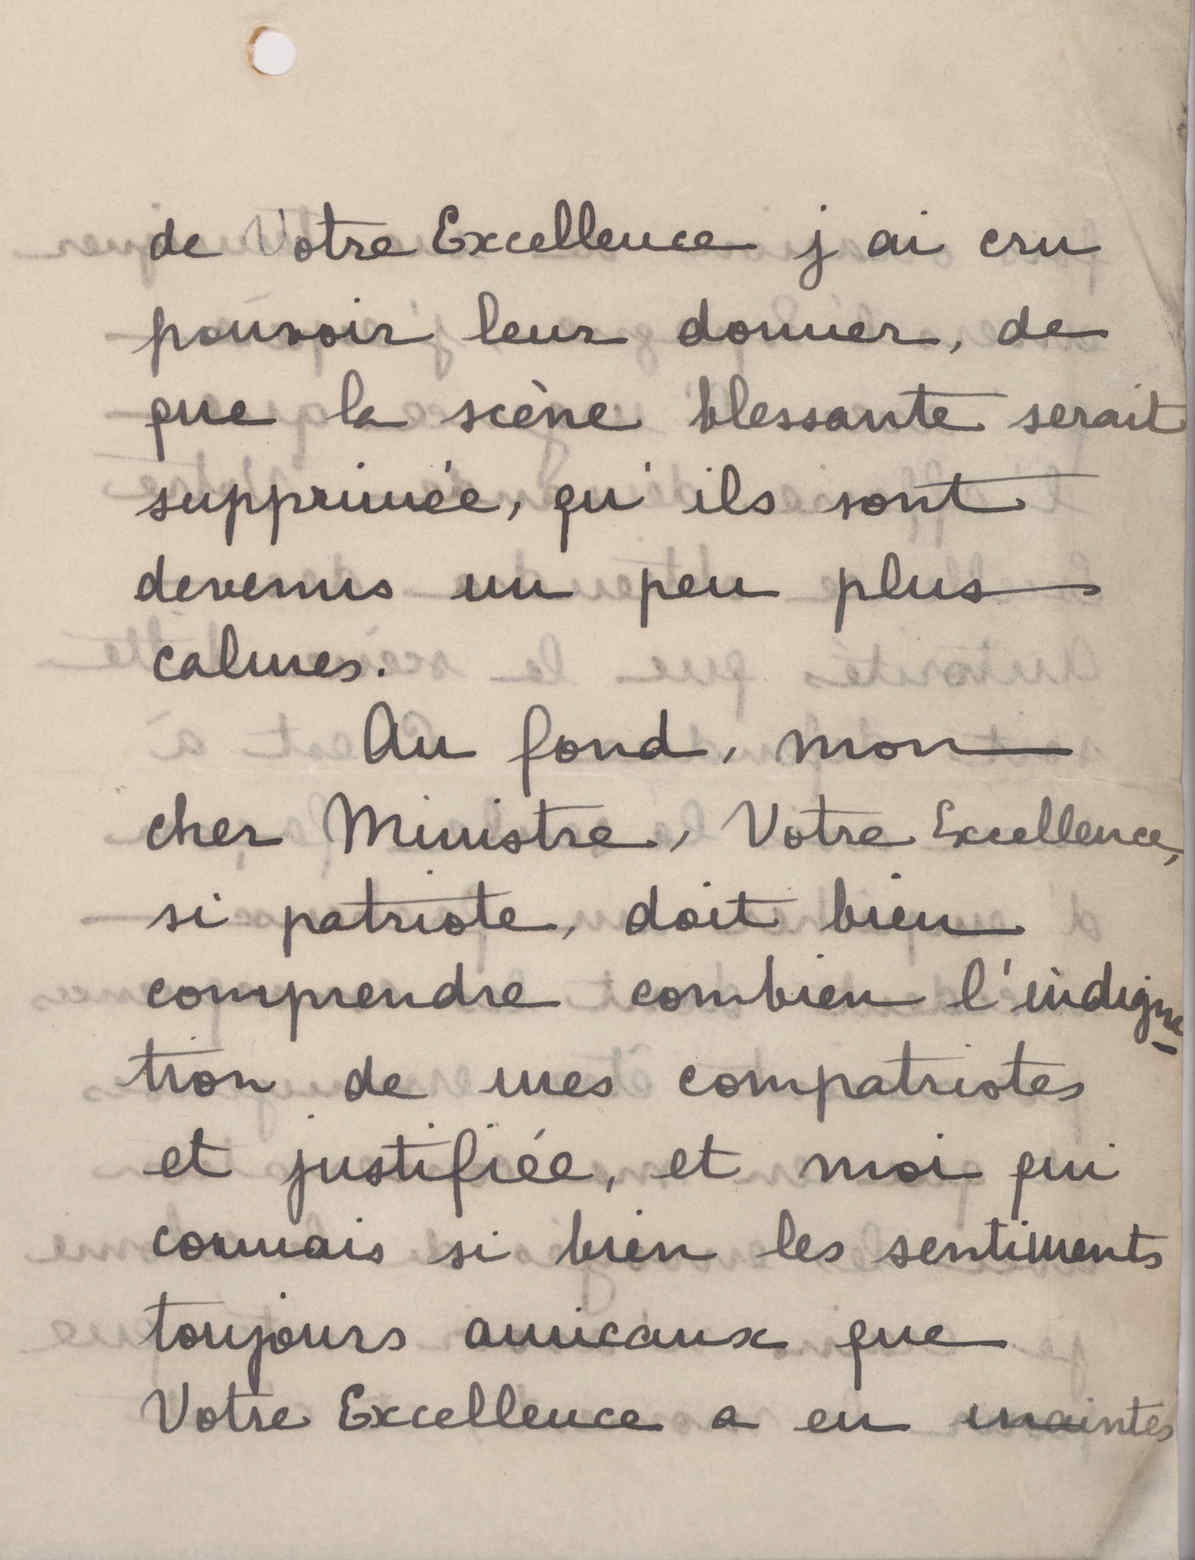 de Votre Excellence j'ai cru
pouvoir leur donner, de
que la scène blessante serait
supprimée, qu'ils sont
devenus un peu plus
calmes.
Au fond, mon
cher Ministre, Votre Excellence,
si patriote, doit bien
comprendre combien l'indigna-
tion de mes compatriotes
et justifiée, et moi qui
connais si bien les sentiments
toujours amicaux que
Votre Excellence a eu maintes